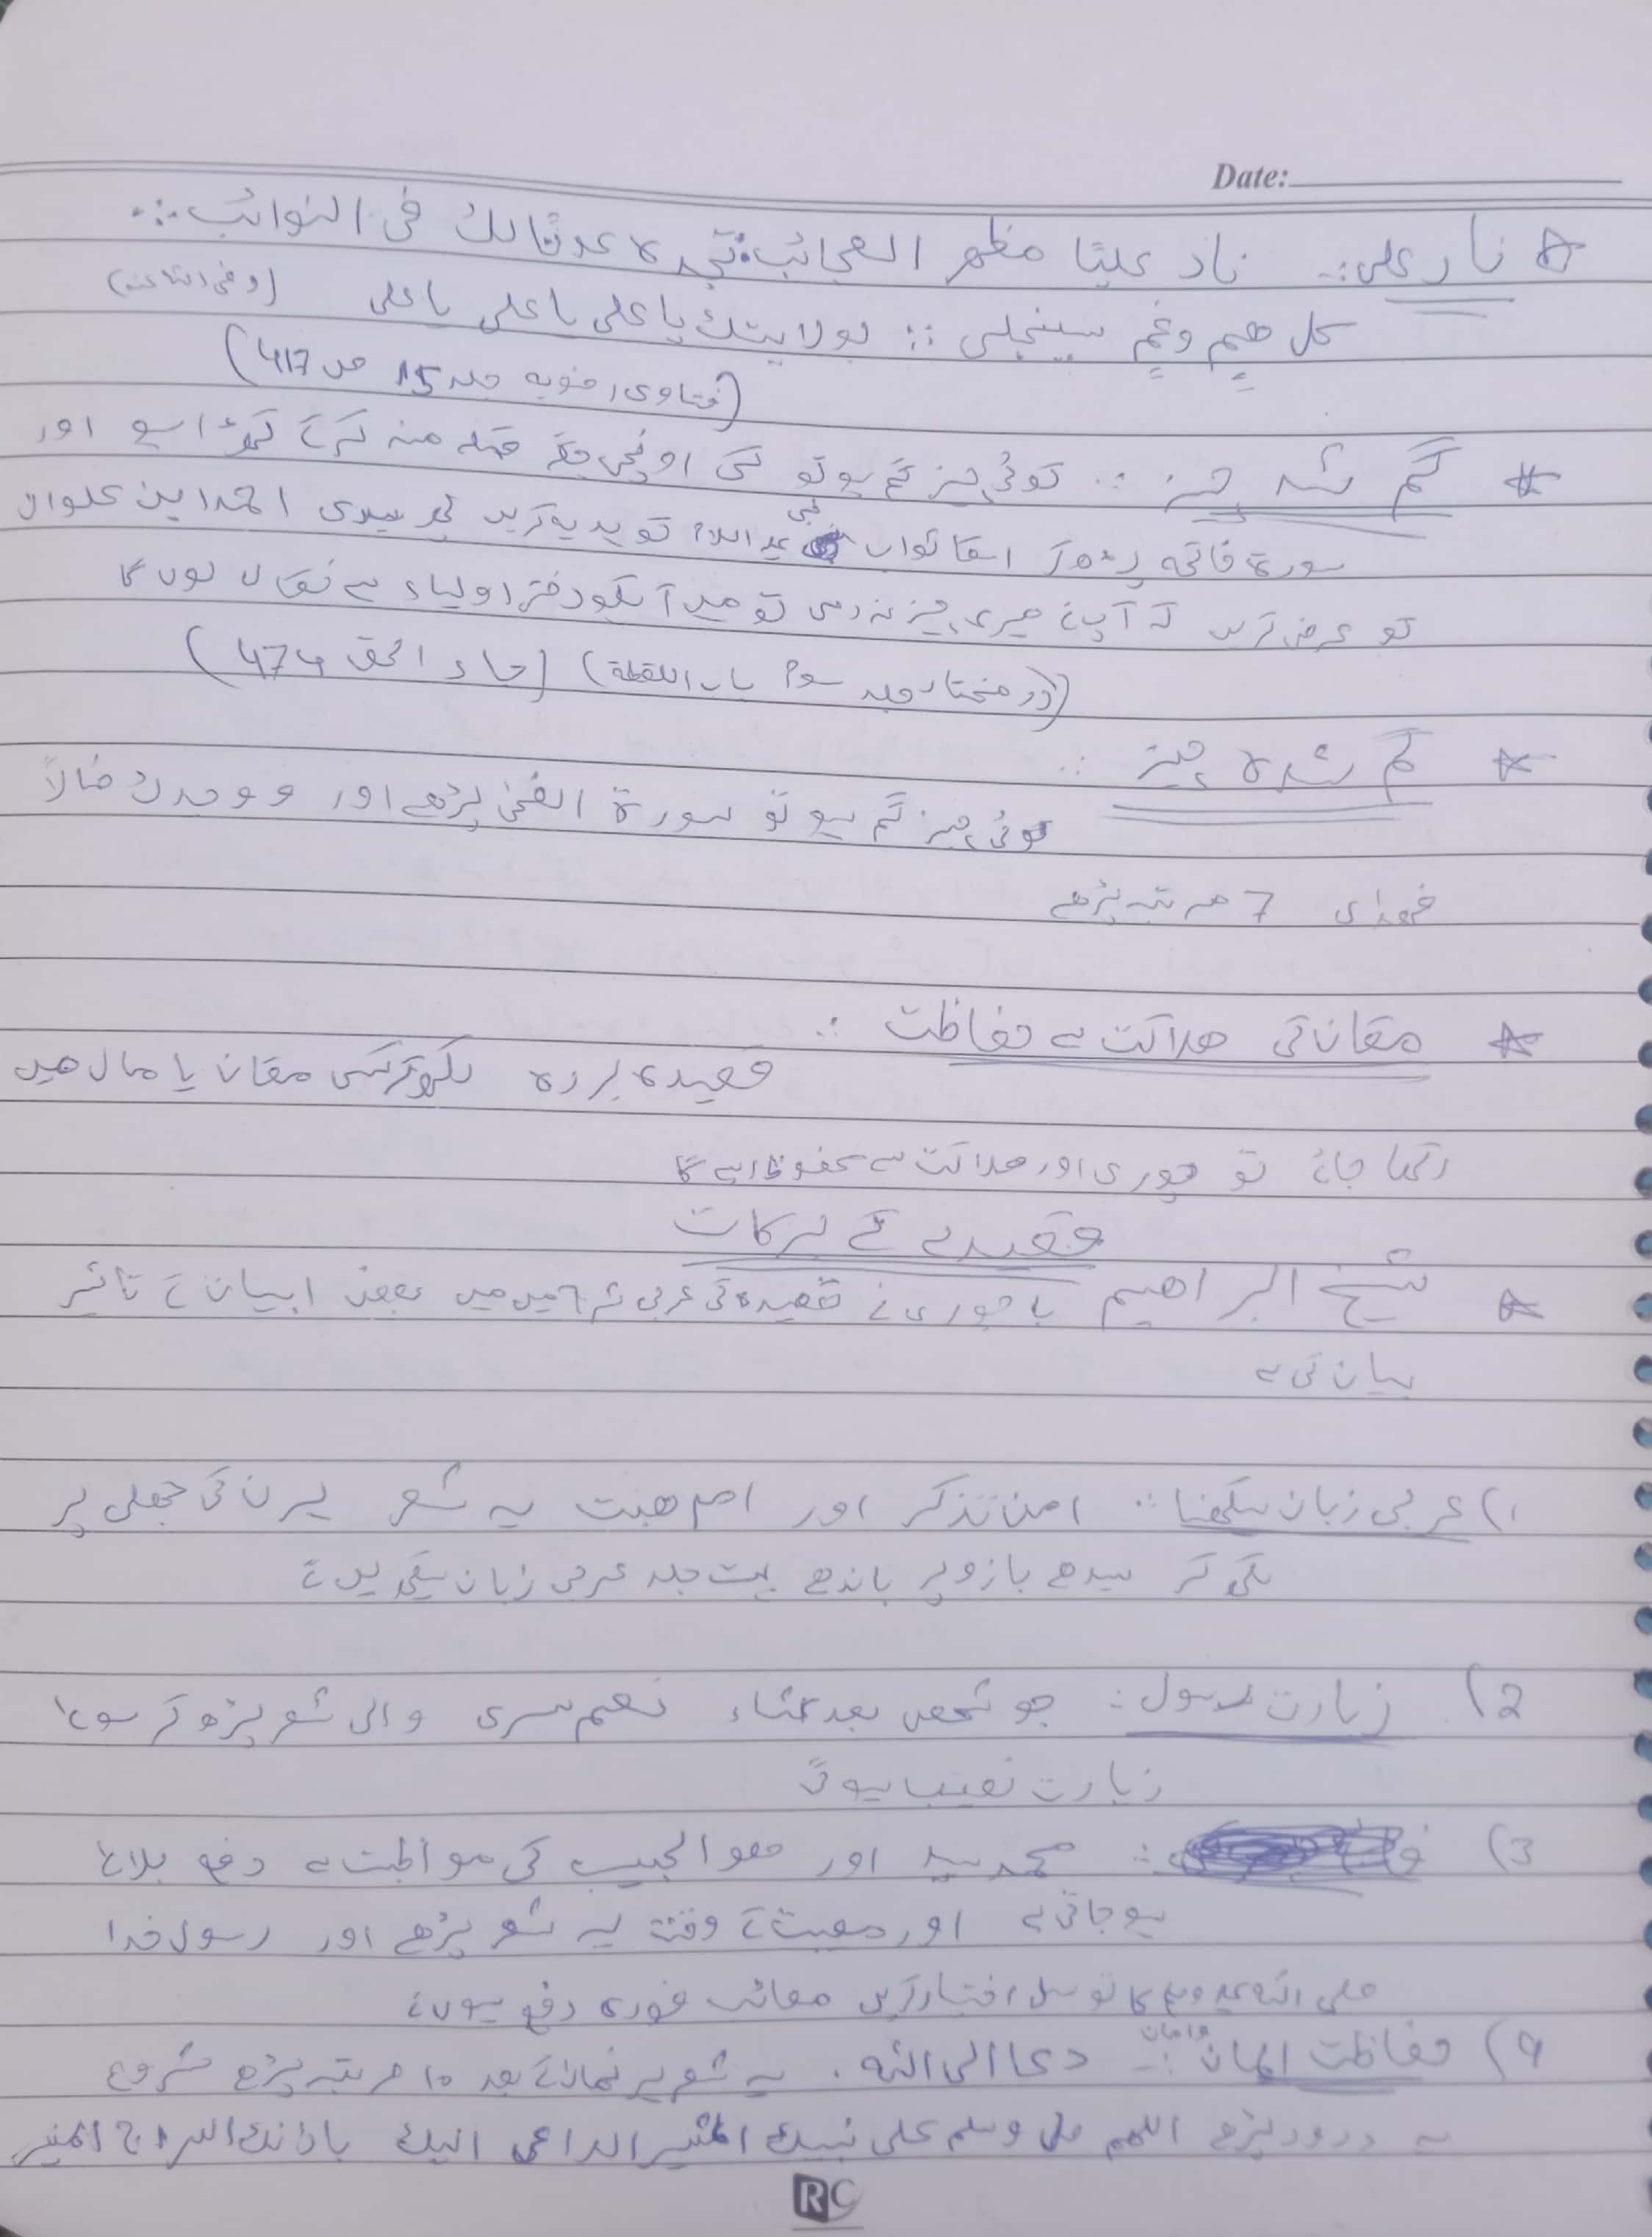 Date:
ناد علی :۔ ناد علیًا مظهر العجائب ؞ تجده عونا لك فی النوائب ؞
كل هم وغم سینجلی ؞ بولایتك یا علی یا علی یا علی
(فتاوی رضویہ جلد 15 ص 417)
گم شدہ چیز ؞ کوئی چیز گم ہو تو کسی اونچی جگہ قبلہ منہ کرکے کھڑا ہے اور
سورۃ فاتحہ پڑھکر اسکا ثواب نبی علیہ السلام کو ہدیہ کریں پھر سیدی احمد ابن علوان
کو عرض کریں کہ آپ نے میری چیز نہ دی تو میں آپکو دفتر اولیاء سے نکال لوں گا
(در مختار جلد سوم باب اللقطة) (جاء الحق 474)
گم شدہ چیز ؞
کوئی چیز گم ہو تو سورۃ الضحیٰ پڑھے اور ووجدك ضالاً
فھدٰی 7 مرتبہ پڑھے
مقان کی ھلاکت سے حفاظت ؞
قصیدہ بردہ لکھ کر کسی مقان یا مال میں
رکھا جائے تو چوری اور ھلاکت سے محفوظ رہے گا
قصیدے کے برکات
شیخ ابراھیم باجوری نے قصیدہ کی عربی شرح میں بعض ابیان کے تاثیر
بیان کی ہے
1) عربی زبان سیکھنا ؞ امن تذکر اور ام ھبت یہ شعر ہرن کی جھلی پر
لکھ کر سیدھے بازو پر باندھے بہت جلد عربی زبان سیکھ لیں گے
2) زیارت رسول : جو شخص بعد عشاء نعم سری والی شعر پڑھ کر سوئے
زیارت نصیب ہوگی
3) : محمد سید اور ھو الحبیب کی مواظبت سے دفع بلائے
ہو جاتی ہے اور مصیبت کے وقت یہ شعر پڑھے اور رسول خدا
صلی اللہ علیہ وسلم کا توسل اختیار کریں مصائب فوری دفع ہوں گے
4) حفاظت ایمان وامان :۔ دعا الی اللہ ۔ یہ شعر ہر نماز کے بعد 10 مرتبہ پڑھے شروع
سے درود پڑھے اللهم صل وسلم علی نبیك البشیر الداعی الیك باذنك السراج المنیر
RC